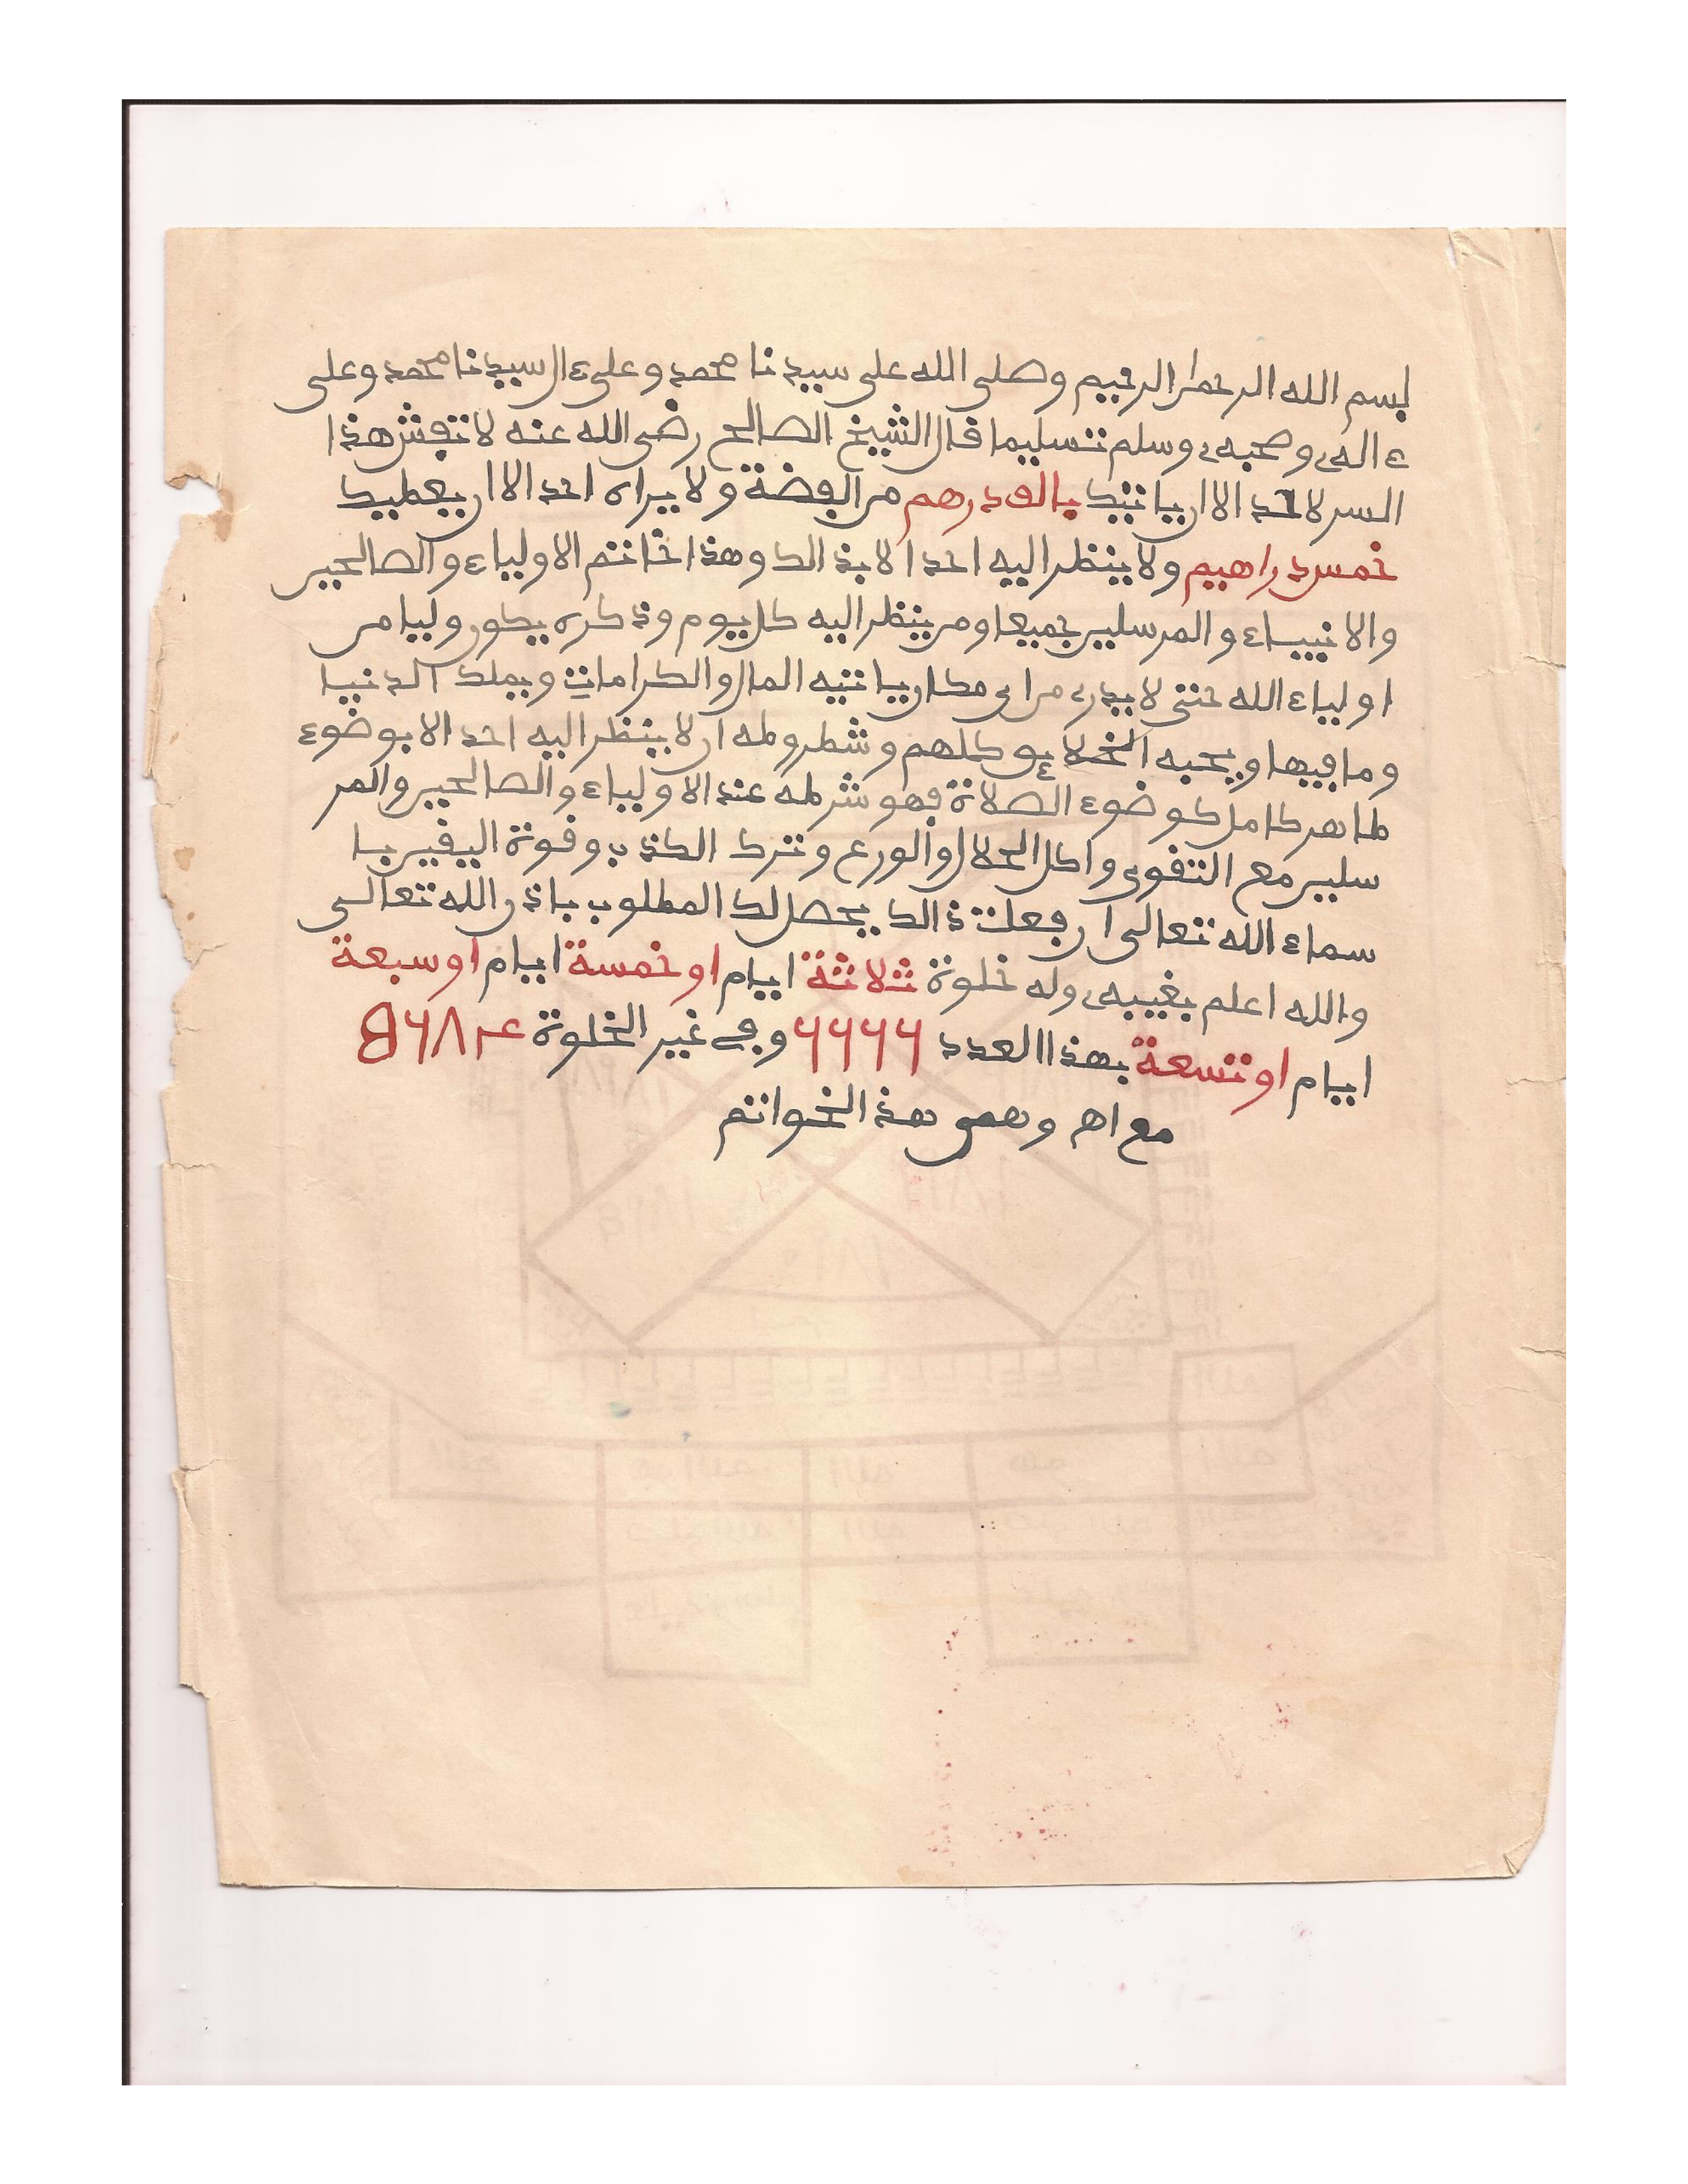 بسم الله الرحمن الرحيم وصلى الله على سيدنا محمد وعلى ءال سيدنا محمد وعلى
ءاله وصحبه وسلم تسليما قال الشيخ الصالح رضي الله عنه لا تفش هذا
السر لاحد الا ان ياتيك بالف درهم من الفضة ولا يراه احد الا ان يعطيك
خمس دراهيم ولا ينظر اليه احد الا بذالك وهذا خاتم الاولياء والصالحين
والانبياء والمرسلين جميعا ومن ينظر اليه كل يوم وذكره يكون وليا من
اولياء الله حتى لا يدرى من اى مكان ياتيه المال والكرامات ويملك الدنيا
وما فيها ويحبه الخلايق كلهم وشطروطه ان لا ينظر اليه احد الا بوضوء
طاهر كامل كوضوء الصلاة فهو شرطه عند الاولياء والصالحين والمر
سلين مع التقوى واكل الحلال والورع وترك الكذب وقوة اليقين با
سماء الله تعالى ان فعلت ذالك يحصل لك المطلوب باذن الله تعالى
والله اعلم بغيبه وله خلوة ثلاثة ايام او خمسة ايام او سبعة
ايام او تسعة بهذا العدد ٦٦٦٦ وفي غير الخلوة
مع اهـ وهي هذ الخواتم